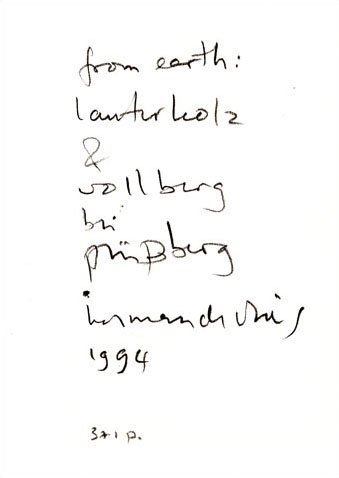 from earth:
lauterholz
&
vollberg
bei
prüßberg
herman de vries
1994
p.